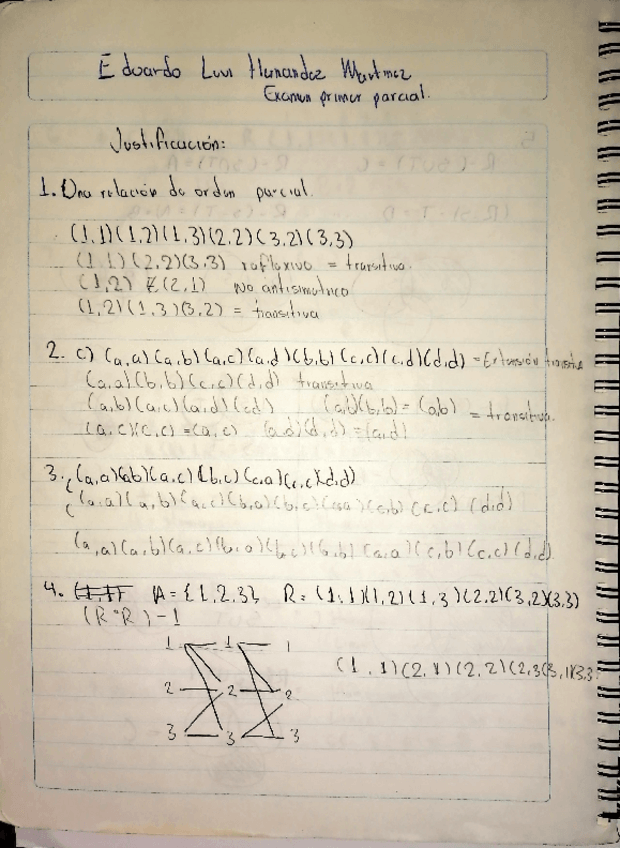 Eduardo Luis Hernandez Martinez
Examen primer parcial.
Justificación:
1. Una relación de orden parcial.
(1,1)(1,2)(1,3)(2,2)(3,2)(3,3)
(1,1)(2,2)(3,3) reflexivo = transitiva.
(1,2) ∉(2,1) No antisimetrico
(1,2)(1,3)(3,2) = transitiva
2. c) (a,a)(a,b)(a,c)(a,d)(b,b)(c,c)(c,d)(d,d) = Extensión
(a,a)(b,b)(c,c)(d,d) transitiva
(a,b)(a,c)(a,d)(c,d) (a,b)(b,b)=(a,b) = transitiva.
(a,c)(c,c)=(a,c) (a,d)(d,d)=(a,d)
3. (a,a)(a,b)(a,c)(b,c)(c,a)(c,c)(d,d)
(a,a)(a,b)(a,c)(b,a)(b,c)(c,a)(c,b)(c,c)(d,d)
(a,a)(a,b)(a,c)(b,a)(b,c)(b,b)(c,a)(c,b)(c,c)(d,d)
4. (1,1) A={1,2,3}, R=(1,1)(1,2)(1,3)(2,2)(3,2)(3,3)
(R°R)-1
1 1 1
(1,1)(2,1)(2,2)(2,3(3,1)(3,3
2 2 2
3 3 3